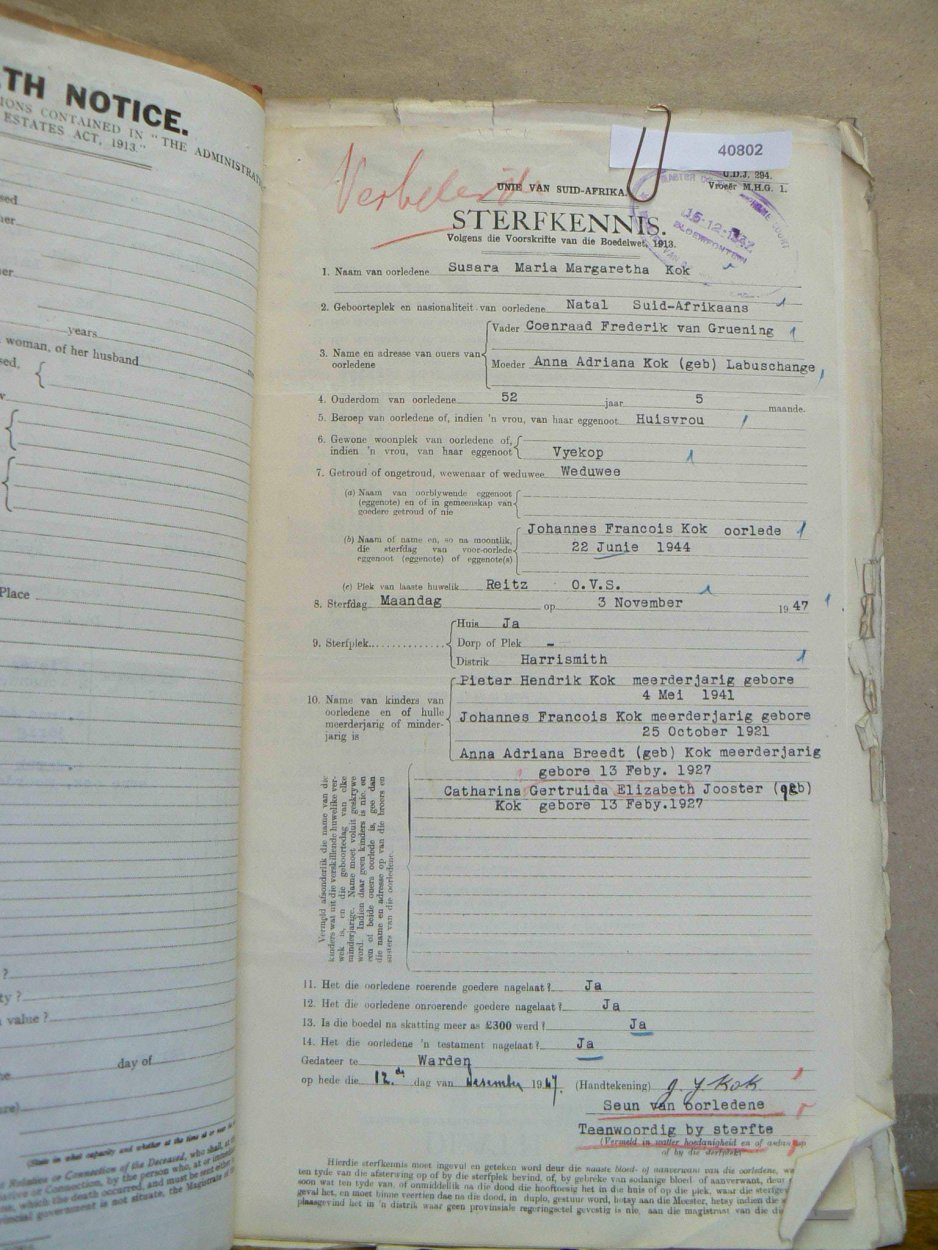 TH NOTICE.
IONS CONTAINED IN "THE ADMINISTRAT
ESTATES ACT, 1913."
sed
her
er
years
woman, of her husband
sed,
Place
?
ty ?
value ?
day of
40802
U.D.J. 294.
Vroeër M.H.G. 1.
UNIE VAN SUID-AFRIKA.
STERFKENNIS.
Volgens die Voorskrifte van die Boedelwet, 1913.
15-12-1947
BLOEMFONTEIN
1. Naam van oorledene Susara Maria Margaretha Kok
2. Geboorteplek en nasionaliteit van oorledene Natal Suid-Afrikaans
3. Name en adresse van ouers van oorledene
Vader Coenraad Frederik van Gruening
Moeder Anna Adriana Kok (geb) Labuschange
4. Ouderdom van oorledene 52 jaar 5 maande.
5. Beroep van oorledene of, indien 'n vrou, van haar eggenoot Huisvrou
6. Gewone woonplek van oorledene of,
indien 'n vrou, van haar eggenoot Vyekop
7. Getroud of ongetroud, wewenaar of weduwee Weduwee
(a) Naam van oorblywende eggenoot
(eggenote) en of in gemeenskap van
goedere getroud of nie
(b) Naam of name en, so na moontlik,
die sterfdag van voor-oorlede
eggenoot (eggenote) of eggenote(s)
Johannes Francois Kok oorlede
22 Junie 1944
(c) Plek van laaste huwelik Reitz O.V.S.
8. Sterfdag Maandag op 3 November 1947
9. Sterfplek
Huis Ja
Dorp of Plek -
Distrik Harrismith
10. Name van kinders van
oorledene en of hulle
meerderjarig of minder-
jarig is
Pieter Hendrik Kok meerderjarig gebore
4 Mei 1941
Johannes Francois Kok meerderjarig gebore
25 October 1921
Anna Adriana Breedt (geb) Kok meerderjarig
gebore 13 Feby. 1927
Catharina Gertruida Elizabeth Jooster (geb)
Kok gebore 13 Feby.1927
Vermeld afsonderlik die name van die
kinders wat uit die verskillende huwelike ver-
wek is, en die geboortedag van elke
minderjarige. Name moet voluit geskrywe
word. Indien daar geen kinders is nie, en
een of beide ouers oorlede is, gee dan
die name en adresse op van die broers en
susters van die oorledene.
11. Het die oorledene roerende goedere nagelaat? Ja
12. Het die oorledene onroerende goedere nagelaat? Ja
13. Is die boedel na skatting meer as £300 werd? Ja
14. Het die oorledene 'n testament nagelaat? Ja
Gedateer te Warden
op hede die 12de dag van Desember 1947. (Handtekening) J. F. Kok
Seun van oorledene
Teenwoordig by sterfte
(Vermeld in watter hoedanigheid en of
of by die sterfplek)
Hierdie sterfkennis moet ingevul en geteken word deur die naaste bloed- of aanverwant van die oorledene, w
ten tyde van die afsterwing op of by die sterfplek bevind, of, by gebreke van sodanige bloed- of aanverwant, deur
soon wat ten tyde van, of onmiddellik na die dood die hooftoesig het in die huis of op die plek, waar die sterfgev
geval het, en moet binne veertien dae na die dood, in duplo, gestuur word, hetsy aan die Meester, hetsy indien die
plaasgevind het in 'n distrik waar geen provinsiale regeringsetel gevestig is nie, aan die magistraat van die di